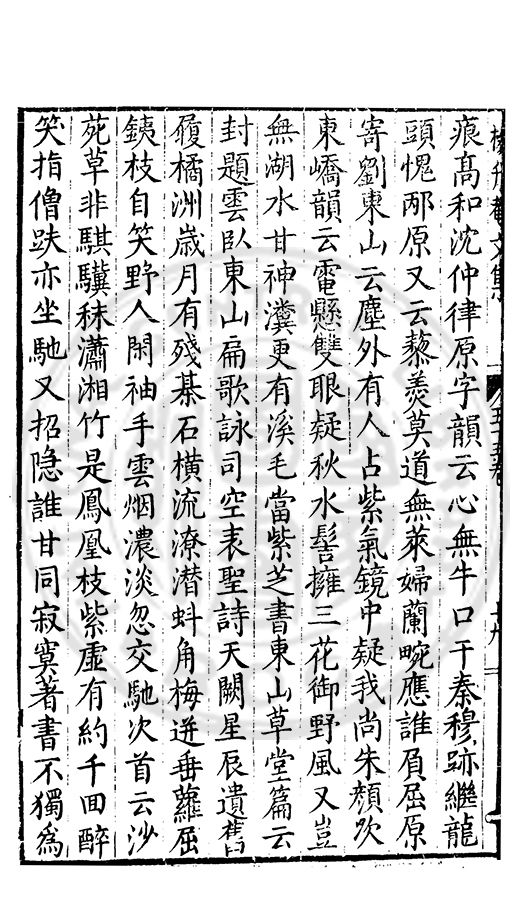 楊升菴文集
卷五十五
十九
痕高和沈仲律原字韻云心無牛口干秦穆跡繼龍
頭愧邴原又云藜羮莫道無萊婦蘭畹應誰屓屈原
寄劉東山云塵外有人占紫氣鏡中疑我尚朱顏次
東嶠韻云電懸雙眼疑秋水髻擁三花御野風又豈
無湖水甘神瀵更有溪毛當紫芝書東山草堂篇云
封題雲臥東山扁歌詠司空表聖詩天闕星辰遺舊
履橘洲歲月有殘棊石橫流潦潜蚪角梅迸垂蘿屈
鐵枝自笑野人閑袖手雲烟濃淡忽交馳次首云沙
苑草非騏驥秣瀟湘竹是鳳凰枝紫虛有約千回醉
笑指僧趺亦坐馳又招隐誰甘同寂寞著書不獨為